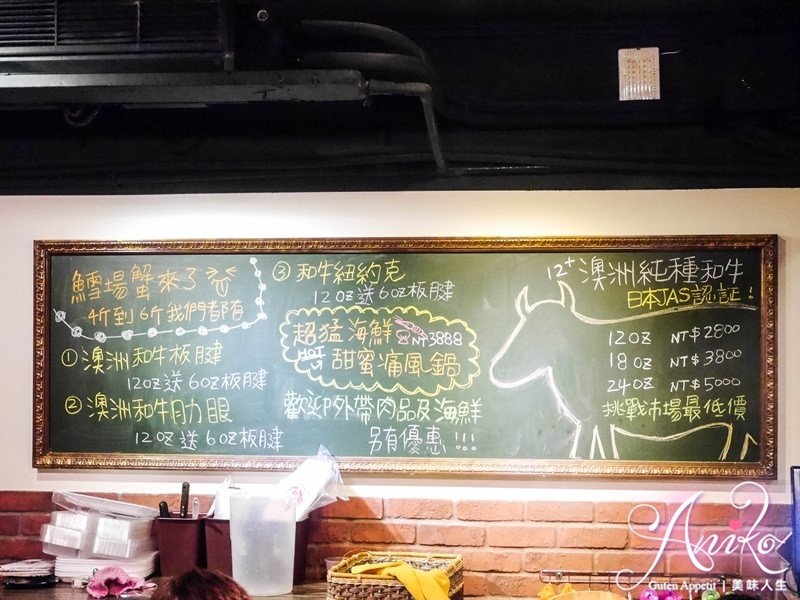 鱈場蟹來了
4斤到6斤我們都有
①澳洲和牛板腱
12oz送6oz板腱
②澳洲和牛肋眼
12oz送6oz板腱
③和牛紐約克
12oz送6oz板腱
超猛海鮮 NT3888
HOT 甜蜜痛風鍋
歡迎外帶肉品及海鮮
另有優惠!!!
12+澳洲純種和牛
日本JAS認証!
12oz NT$2800
18oz NT$3800
24oz NT$5000
挑戰市場最低價
Aniko
Guten Appetit|美味人生